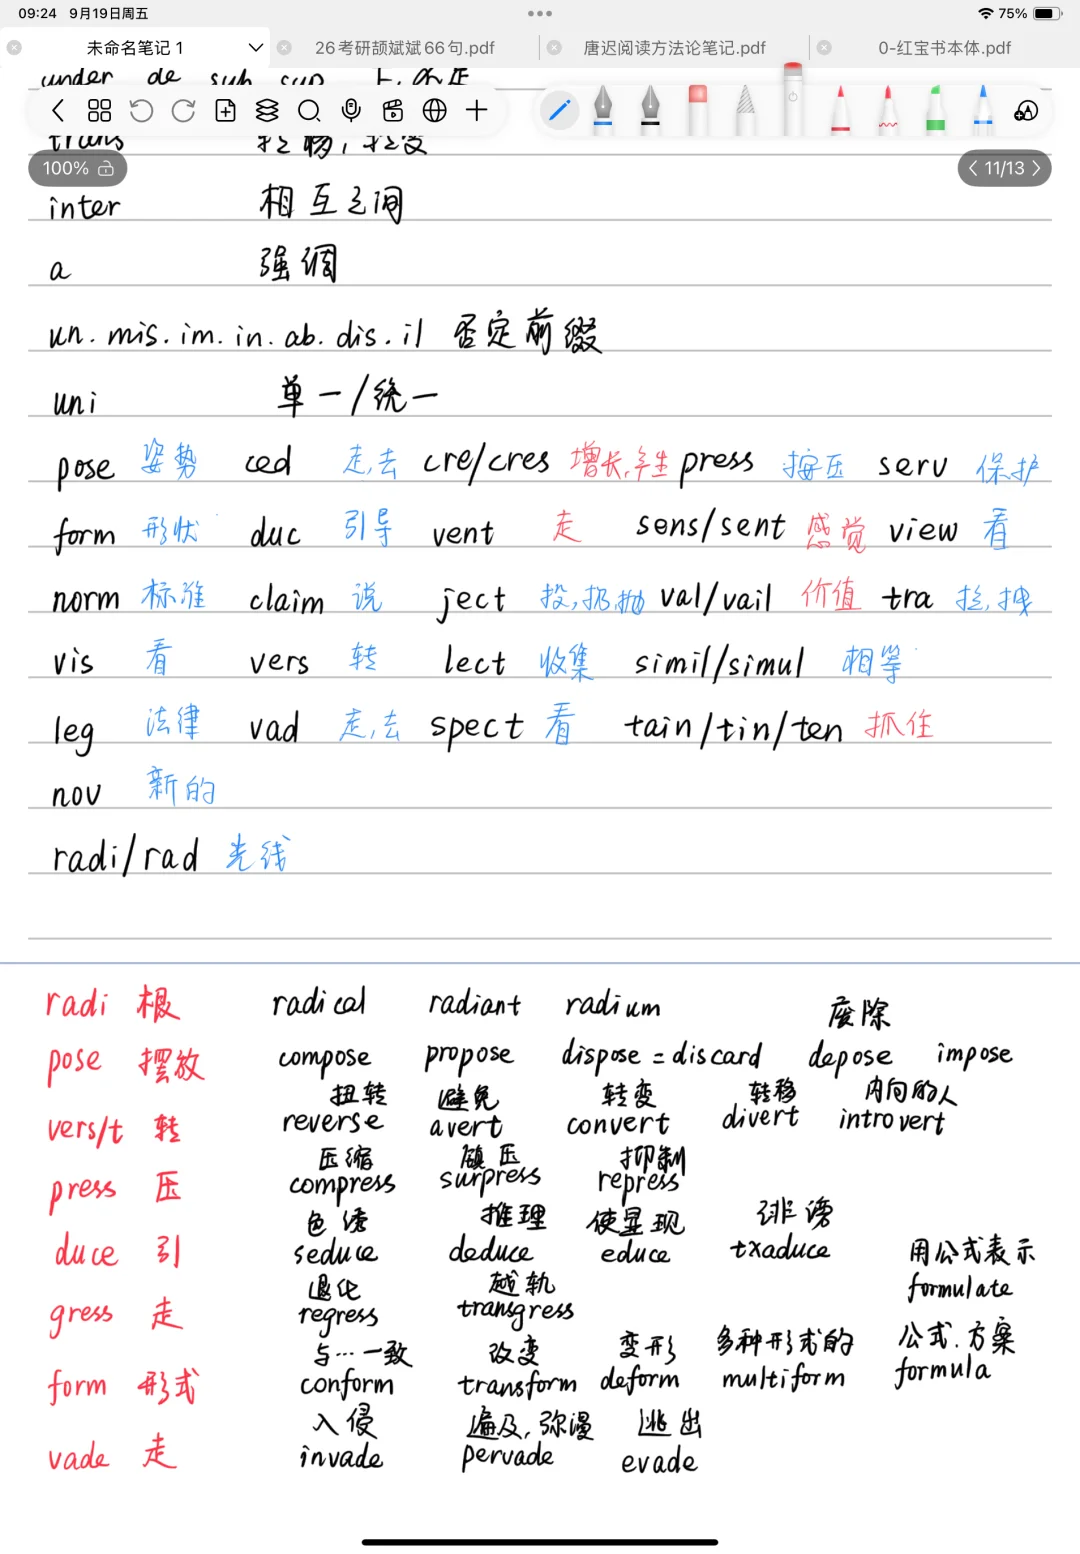 09:24 9月19日周五
75%
未命名笔记 1
26考研颉斌斌66句.pdf
唐迟阅读方法论笔记.pdf
0-红宝书本体.pdf
under de sub
trans
100%
11/13
inter 相互之间
a 强调
un.mis.im.in.ab.dis.il 否定前缀
uni 单一/统一
pose 姿势 ced 走,去 cre/cres 增长,产生 press 按压 serv 保护
form 形状 duc 引导 vent 走 sens/sent 感觉 view 看
norm 标准 claim 说 ject 投,扔,抛 val/vail 价值 tra 拉,拽
vis 看 vers 转 lect 收集 simil/simul 相等
leg 法律 vad 走,去 spect 看 tain/tin/ten 抓住
nov 新的
radi/rad 光线
radi 根 radical radiant radium
废除
pose 摆放 compose propose dispose = discard depose impose
扭转 避免 转变 转移 内向的人
vers/t 转 reverse avert convert divert introvert
压缩 镇压 抑制
press 压 compress surpress repress
色诱 推理 使显现 诽谤
duce 引 seduce deduce educe txaduce
用公式表示
formulate
退化 越轨
gress 走 regress transgress
与…一致 改变 变形 多种形式的 公式.方案
form 形式 conform transform deform multiform formula
入侵 遍及,弥漫 逃出
vade 走 invade pervade evade